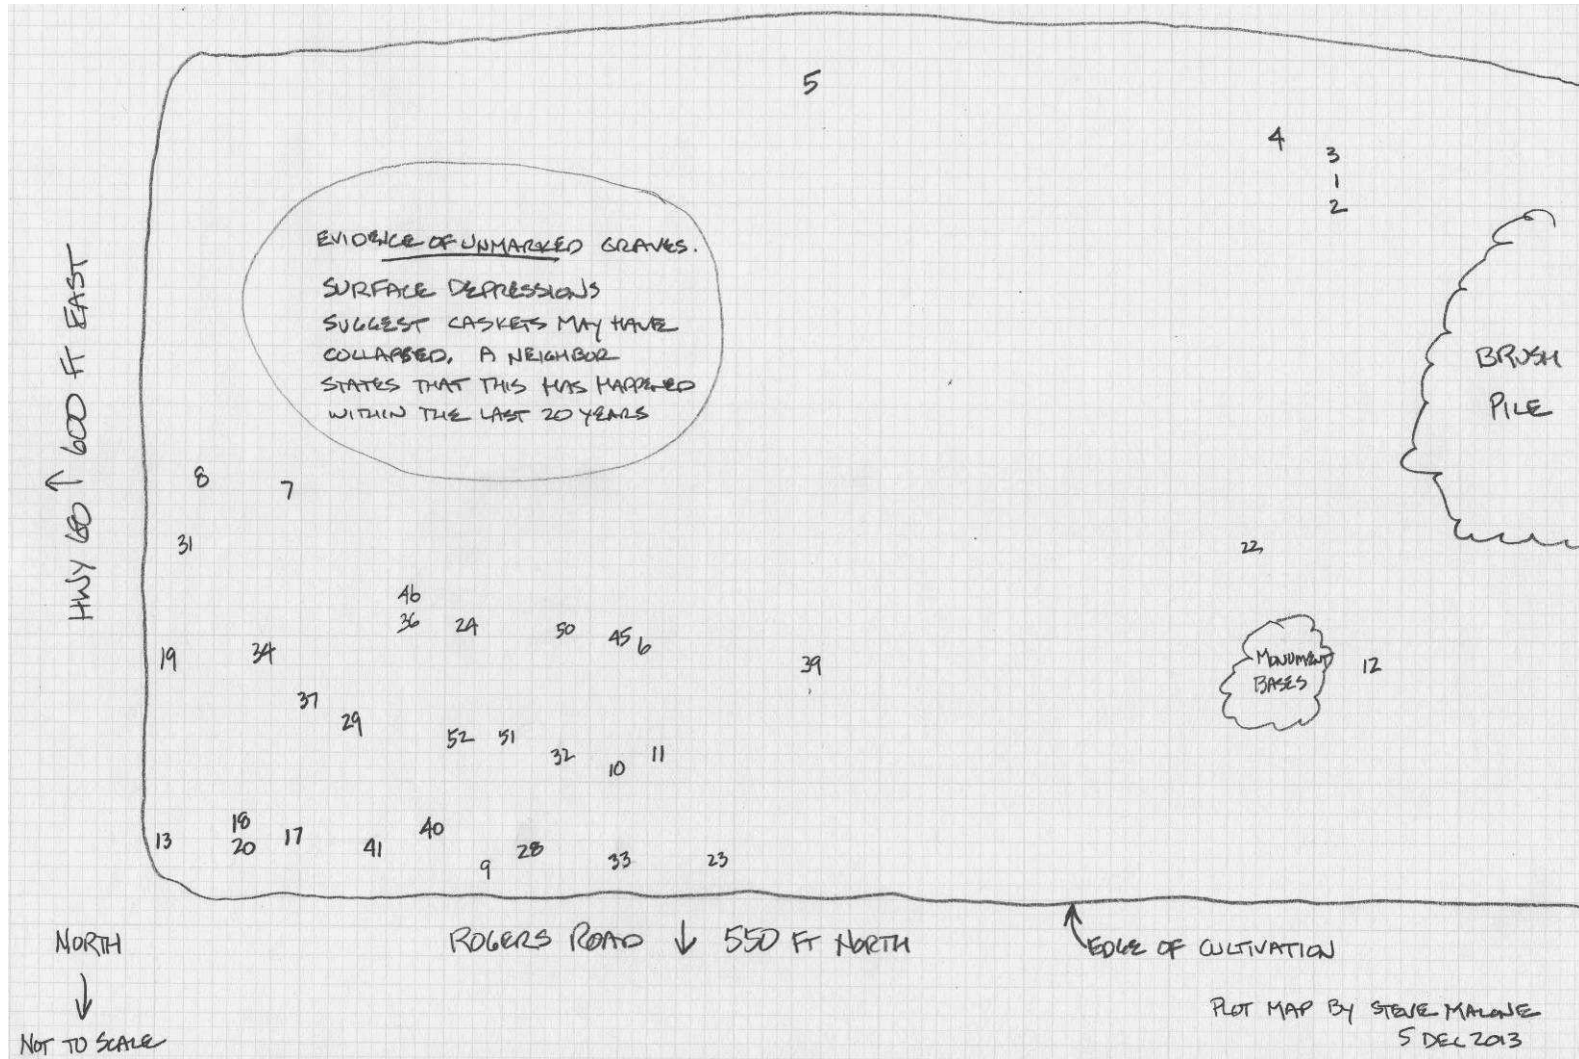 5
4
3
1
2
EVIDENCE OF UNMARKED GRAVES.
SURFACE DEPRESSIONS
SUGGEST CASKETS MAY HAVE
COLLAPSED. A NEIGHBOR
STATES THAT THIS HAS HAPPENED
WITHIN THE LAST 20 YEARS
BRUSH
PILE
HWY 60 ↑ 600 FT EAST
8
7
31
22
46
36
24
50
45
6
19
34
39
MONUMENT
BASES
12
37
29
52
51
32
10
11
13
18
20
17
41
40
9
28
33
23
NORTH
ROGERS ROAD ↓ 550 FT NORTH
EDGE OF CULTIVATION
NOT TO SCALE
PLOT MAP BY STEVE MALONE
5 DEC 2013